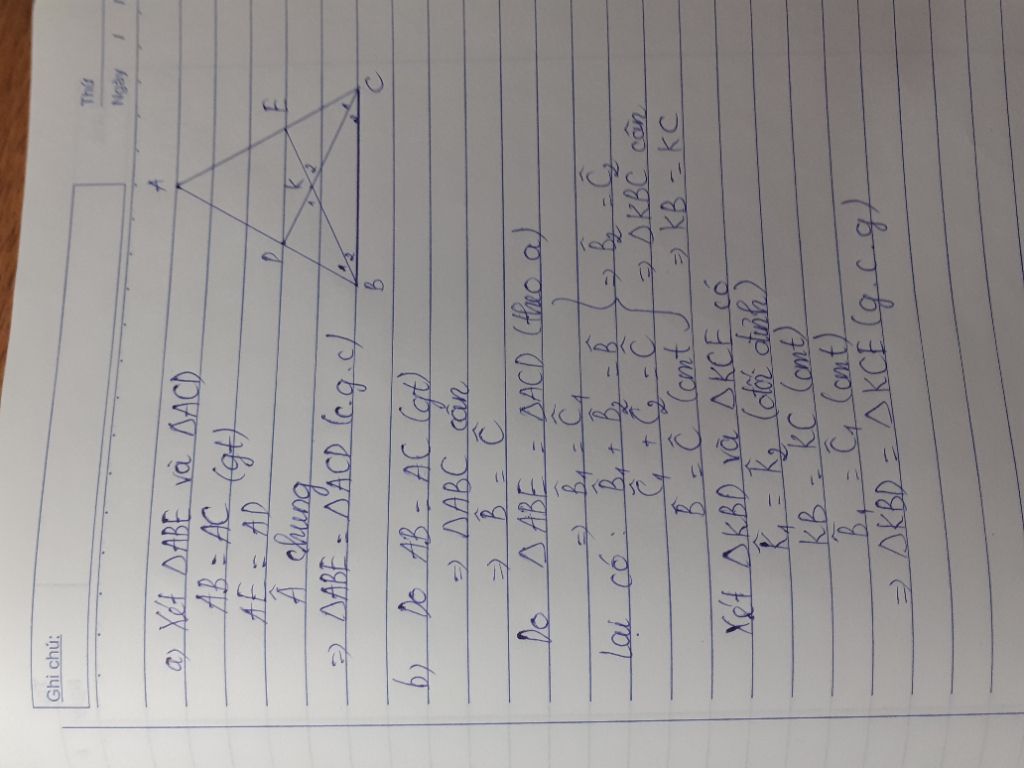 Thứ
Ngày
Ghi chú:
A
D
E
K
1
2
1 2
1
B
C
a) Xét ΔABE và ΔACD
AB = AC (gt)
AE = AD
Â chung
=> ΔABE = ΔACD (c.g.c)
b) Do AB = AC (gt)
=> ΔABC cân
=> B̂ = Ĉ
Do ΔABE = ΔACD (theo a)
=> B̂₁ = Ĉ₁
Lại có: B̂₁ + B̂₂ = B̂ } => B̂₂ = Ĉ₂
Ĉ₁ + Ĉ₂ = Ĉ => ΔKBC cân
B̂ = Ĉ (cmt) => KB = KC
Xét ΔKBD và ΔKCE có
K̂₁ = K̂₂ (đối đỉnh)
KB = KC (cmt)
B̂₁ = Ĉ₁ (cmt)
=> ΔKBD = ΔKCE (g.c.g)